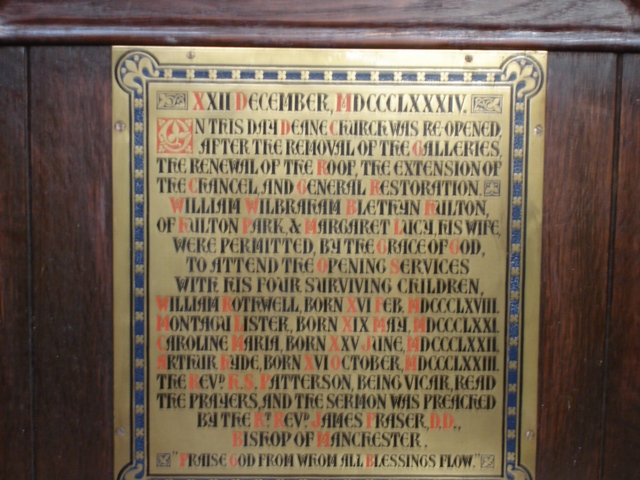 XXII DECEMBER, MDCCCLXXXIV.
ON THIS DAY DEANE CHURCH WAS RE-OPENED,
AFTER THE REMOVAL OF THE GALLERIES,
THE RENEWAL OF THE ROOF, THE EXTENSION OF
THE CHANCEL, AND GENERAL RESTORATION.
WILLIAM WILBRAHAM BLETHYN HULTON,
OF HULTON PARK, & MARGARET LUCY, HIS WIFE,
WERE PERMITTED, BY THE GRACE OF GOD,
TO ATTEND THE OPENING SERVICES
WITH HIS FOUR SURVIVING CHILDREN,
WILLIAM ROTHWELL, BORN XVI FEB. MDCCCLXVIII.
MONTAGU LISTER, BORN XIX MAY, MDCCCLXXI.
CAROLINE MARIA, BORN XXV JUNE, MDCCCLXXII.
ARTHUR HYDE, BORN XVI OCTOBER, MDCCCLXXIII.
THE REVD. H.S. PATTERSON, BEING VICAR, READ
THE PRAYERS, AND THE SERMON WAS PREACHED
BY THE RT. REVD. JAMES FRASER, D.D.,
BISHOP OF MANCHESTER.
"PRAISE GOD FROM WHOM ALL BLESSINGS FLOW."